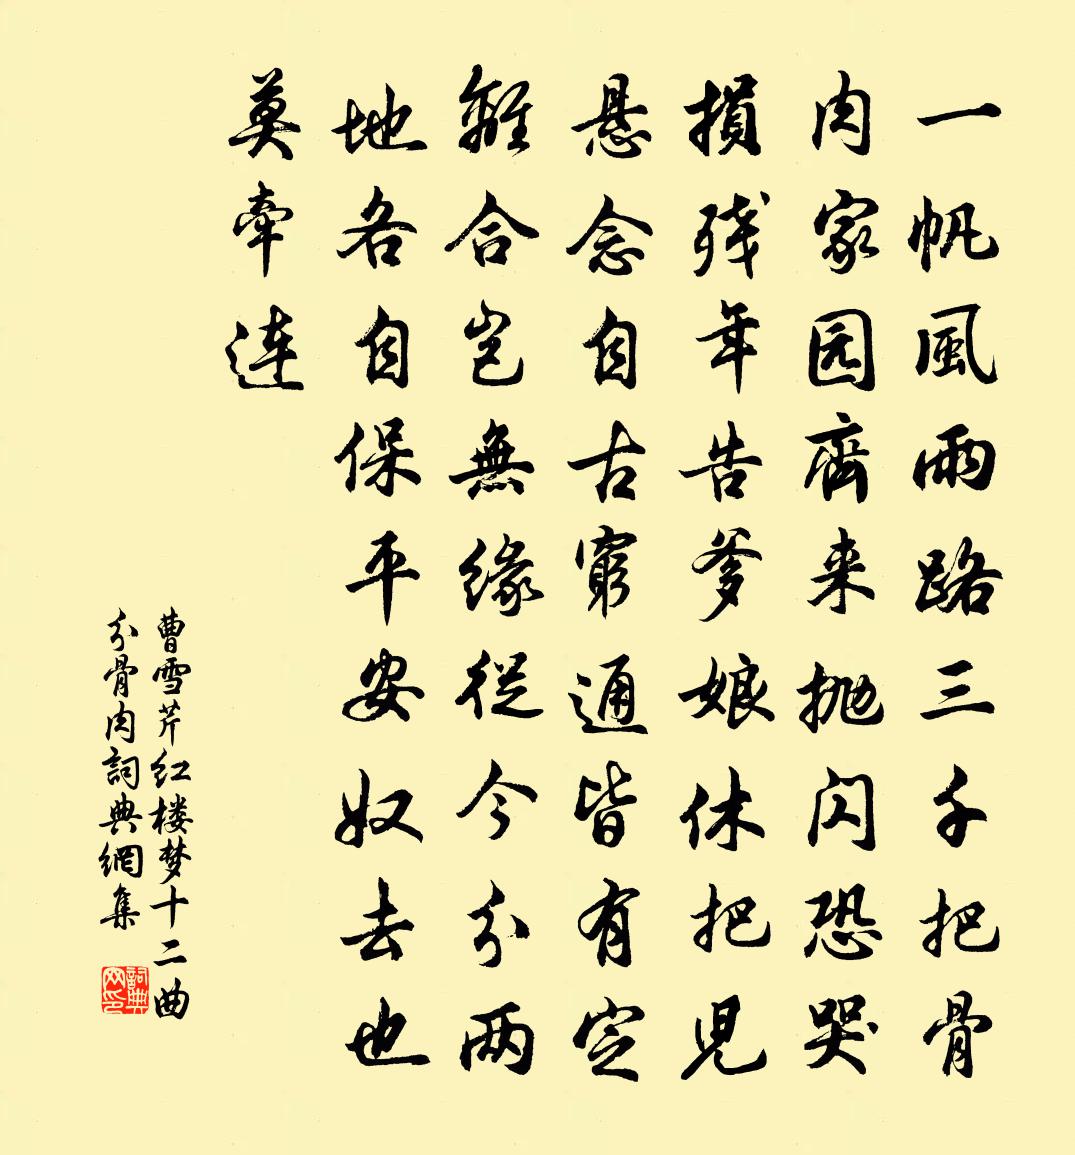 一帆風雨路三千把骨
肉家园齊来抛闪恐哭
損残年告爹娘休把児
悬念自古窮通皆有定
離合岂無缘從今分两
地各自保平安奴去也
莫牽連
曹雪芹红楼梦十二曲
分骨肉詞典網集
詞典网印